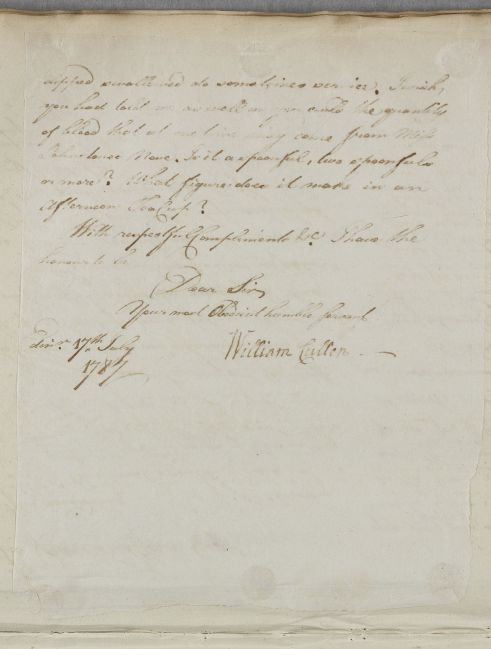 sipped swallowed do sometimes service. I wish,
you had told me as well as you could the quantity
of blood that at one time may come from Miss
Johnstones Nose. Is it a spoonful, two spoonfuls
or more? What figure does it make in an
Afternoon Tea Cup?
With respectful Compliments &c I have the
honour to be
Dear Sir,
Your most Obedient humble servant
William Cullen
Edinr. 17th July
1787